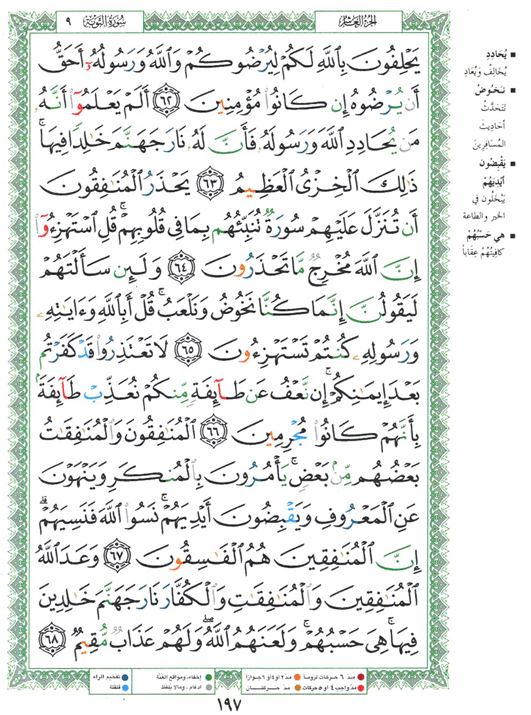 الجزء العاشر
سورة التوبة
٩
يَحْلِفُونَ بِاللَّهِ لَكُمْ لِيُرْضُوكُمْ وَاللَّهُ وَرَسُولُهُ أَحَقُّ
أَن يُرْضُوهُ إِن كَانُوا مُؤْمِنِينَ ٦٢ أَلَمْ يَعْلَمُوا أَنَّهُ
مَن يُحَادِدِ اللَّهَ وَرَسُولَهُ فَأَنَّ لَهُ نَارَ جَهَنَّمَ خَالِدًا فِيهَا ۚ
ذَٰلِكَ الْخِزْيُ الْعَظِيمُ ٦٣ يَحْذَرُ الْمُنَافِقُونَ
أَن تُنَزَّلَ عَلَيْهِمْ سُورَةٌ تُنَبِّئُهُم بِمَا فِي قُلُوبِهِمْ ۚ قُلِ اسْتَهْزِءُوا
إِنَّ اللَّهَ مُخْرِجٌ مَّا تَحْذَرُونَ ٦٤ وَلَئِن سَأَلْتَهُمْ
لَيَقُولُنَّ إِنَّمَا كُنَّا نَخُوضُ وَنَلْعَبُ ۚ قُلْ أَبِاللَّهِ وَءَايَاتِهِ
وَرَسُولِهِ كُنتُمْ تَسْتَهْزِءُونَ ٦٥ لَا تَعْتَذِرُوا قَدْ كَفَرْتُم
بَعْدَ إِيمَانِكُمْ ۚ إِن نَّعْفُ عَن طَائِفَةٍ مِّنكُمْ نُعَذِّبْ طَائِفَةً
بِأَنَّهُمْ كَانُوا مُجْرِمِينَ ٦٦ الْمُنَافِقُونَ وَالْمُنَافِقَاتُ
بَعْضُهُم مِّن بَعْضٍ ۚ يَأْمُرُونَ بِالْمُنكَرِ وَيَنْهَوْنَ
عَنِ الْمَعْرُوفِ وَيَقْبِضُونَ أَيْدِيَهُمْ ۚ نَسُوا اللَّهَ فَنَسِيَهُمْ ۗ
إِنَّ الْمُنَافِقِينَ هُمُ الْفَاسِقُونَ ٦٧ وَعَدَ اللَّهُ
الْمُنَافِقِينَ وَالْمُنَافِقَاتِ وَالْكُفَّارَ نَارَ جَهَنَّمَ خَالِدِينَ
فِيهَا ۚ هِيَ حَسْبُهُمْ ۚ وَلَعَنَهُمُ اللَّهُ ۖ وَلَهُمْ عَذَابٌ مُّقِيمٌ ٦٨
▪ يُحَادِدِ
يُخَالِفْ وَيُعَادِ
▪ نَخُوضُ
نَتَحَدَّثُ
أَحَادِيثَ
المُسَافِرِينَ
▪ يَقْبِضُونَ
أَيْدِيَهُمْ
يَبْخَلُونَ في
الخير والطاعة
▪ هِيَ حَسْبُهُمْ
كَافِيَتُهُمْ عِقَاباً
مدّ ٦ حركات لزوماً
مدّ ٢ او ٤ او ٦ جوازاً
إخفاء، ومواقع الغنّة
تفخيم الراء
مدّ واجب ٤ او ٥ حركات
مدّ حركتان
ادغام، وما لا يلفظ
قلقلة
١٩٧